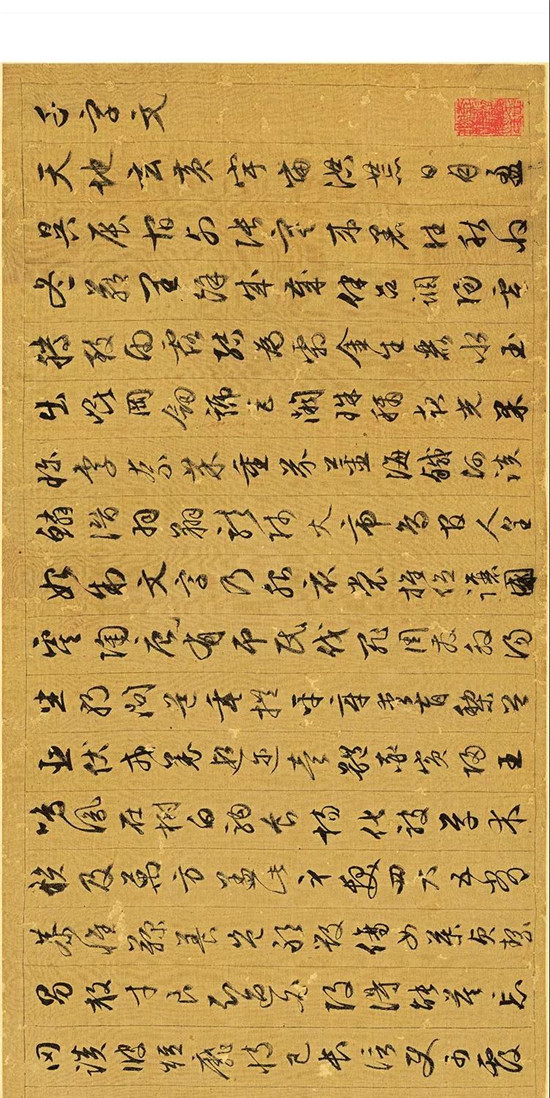 千字文
天地玄黃宇宙洪荒日月盈
昃辰宿列張寒來暑往秋收
冬藏閏餘成歲律召調陽雲
騰致雨露結為霜金生麗水玉
出崑岡劍號巨闕珠稱夜光果
珍李柰菜重芥薑海鹹河淡
鱗潛羽翔龍師火帝鳥官人皇
始制文字乃服衣裳推位讓國
虞陶唐有弔民伐罪周發殷湯
坐朝問道垂拱平章愛育黎首
臣伏戎羌遐邇壹體率賓歸王
鳴鳳在樹白駒食場化被草木
賴及萬方蓋此身髮四大五常
恭惟鞠養豈敢毀傷女慕貞絜
男效才良知過必改得能莫忘
罔談彼短靡恃己長信使可覆